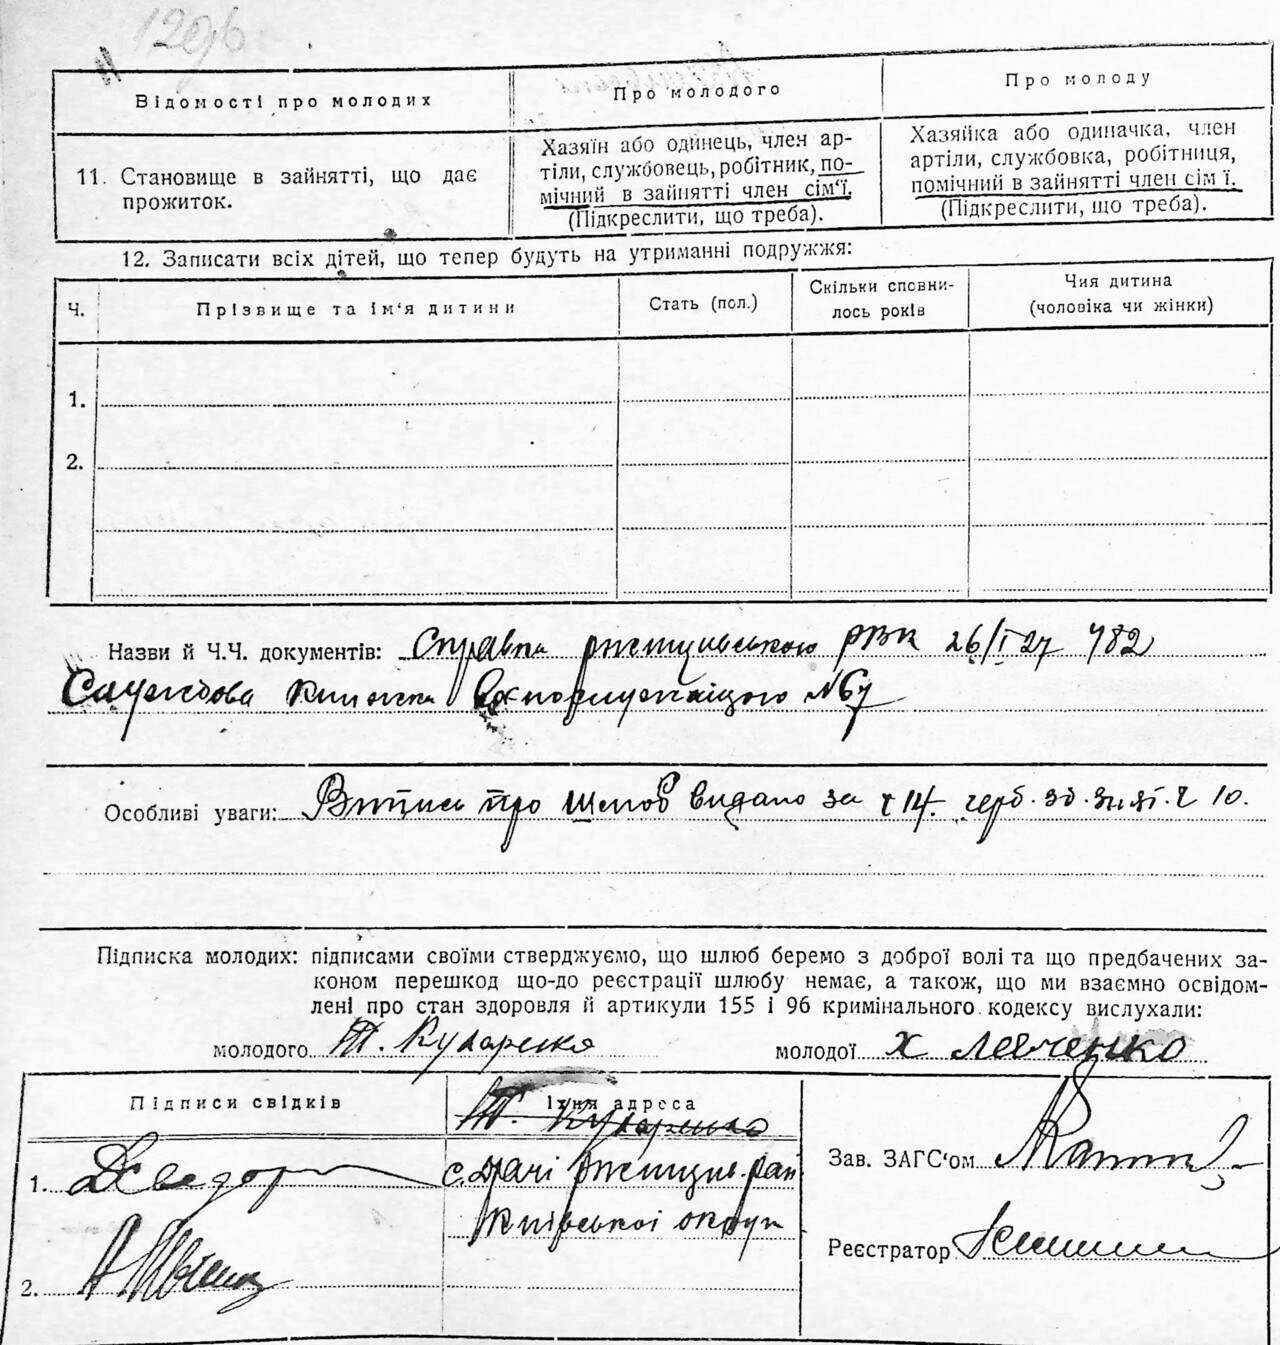 129б
Відомості про молодих
Про молодого
Про молоду
11. Становище в зайнятті, що дає
прожиток.
Хазяїн або одинець, член ар-
тіли, службовець, робітник, по-
мічний в зайнятті член сім'ї.
(Підкреслити, що треба).
Хазяйка або одиначка, член
артіли, службовка, робітниця,
помічний в зайнятті член сім ї.
(Підкреслити, що треба).
12. Записати всіх дітей, що тепер будуть на утриманні подружжя:
Ч.
Прізвище та ім'я дитини
Стать (пол.)
Скільки сповни-
лось років
Чия дитина
(чоловіка чи жінки)
1.
2.
Назви й Ч.Ч. документів: Справка ржищівського РВК 26/I 27 482
Службова книжка №67
Особливі уваги: Витпись про шлюб видано за ч 14. герб. зб. зн. Ч 10.
Підписка молодих: підписами своїми стверджуємо, що шлюб беремо з доброї волі та що предбачених за-
коном перешкод що-до реєстрації шлюбу немає, а також, що ми взаємно освідом-
лені про стан здоровля й артикули 155 і 96 кримінального кодексу вислухали:
молодого Т. Кухаренко
молодої Х Левченко
Підписи свідків
Їхня адреса
Т. Кухаренко
1.
с. Драчі Ржищів. рай
Київської округи
2.
Зав. ЗАГС'ом
Реєстратор